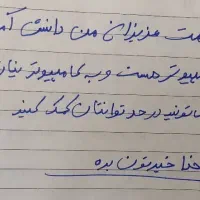 مت عزیزانی من دانش آم
میپوتر هست و به کامپیوتر نیاز
میتونید در حد توانتان کمک کنید
خدا خیرتون بده